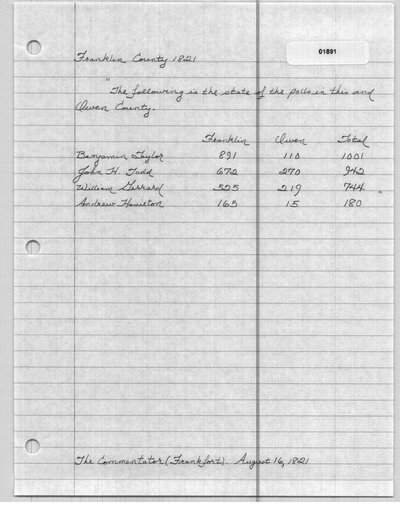 01891
Franklin County 1821
"The following is the state of the polls in this and
Owen County.
Franklin Owen Total
Benjamin Taylor 891 110 1001
John H. Todd 672 270 942
William Gerrard 525 219 744 "
Andrew Hamilton 165 15 180
The Commentator (Frankfort). August 16, 1821